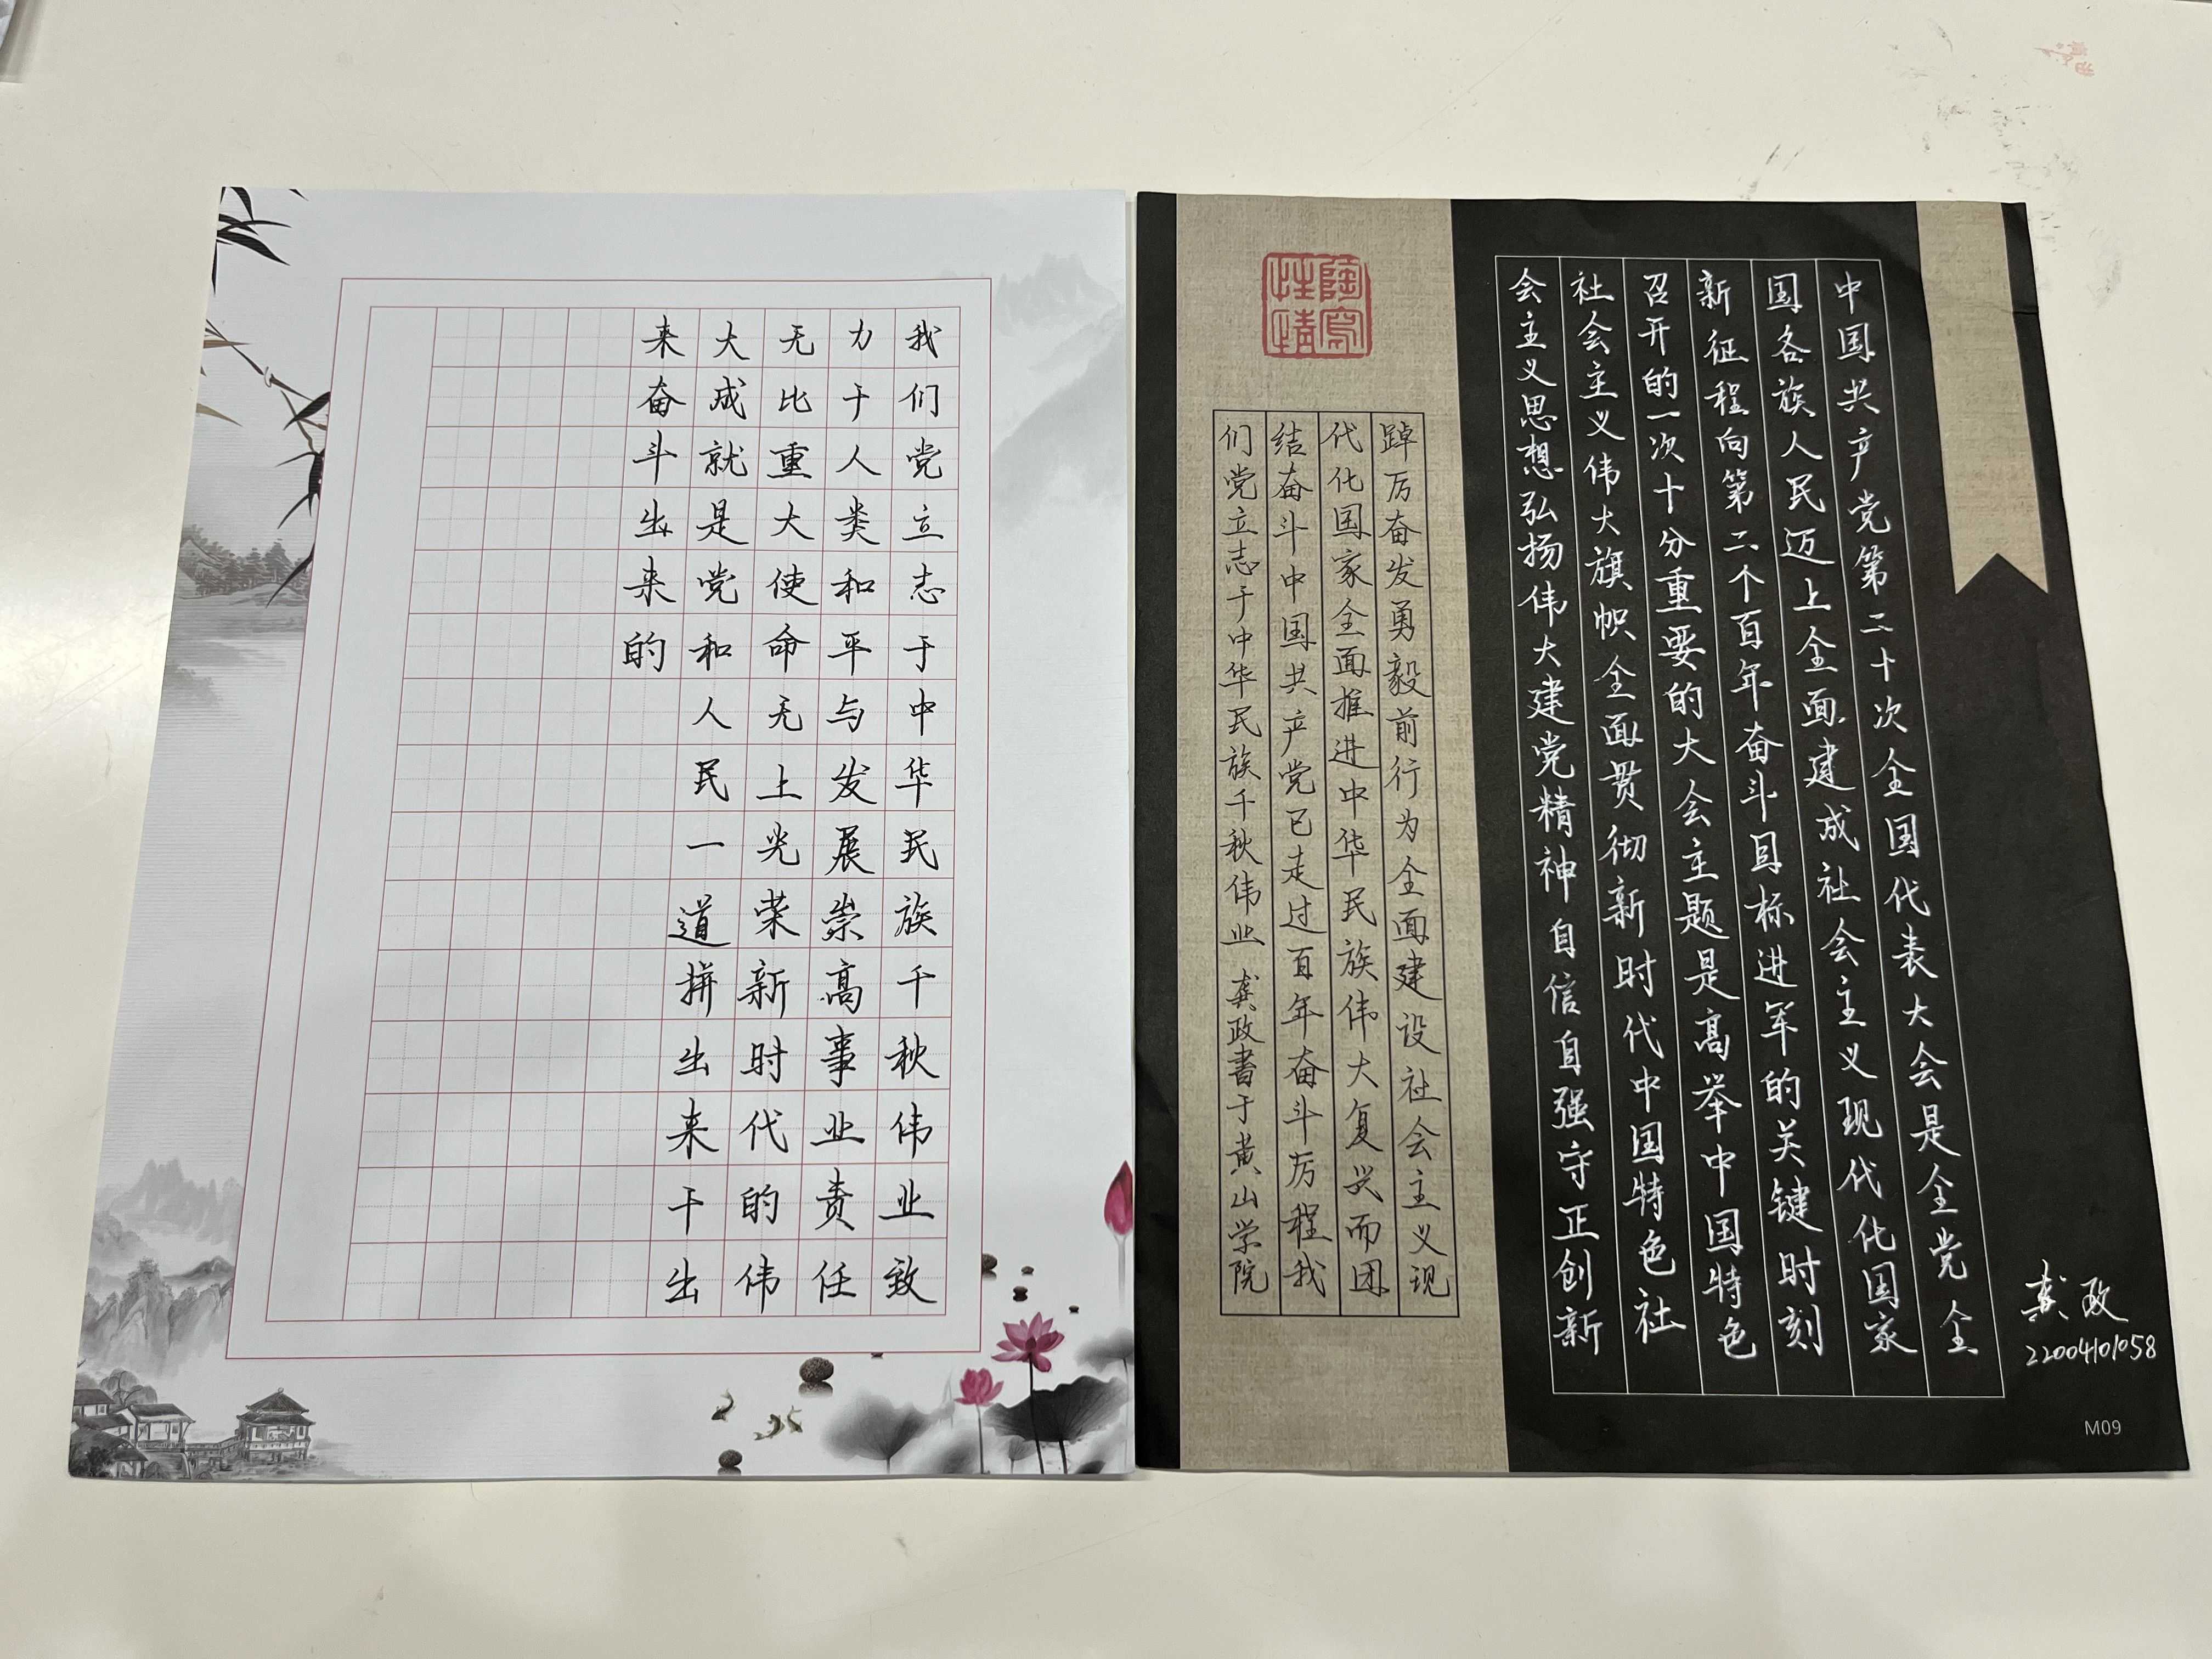 我们党立志于中华民族千秋伟业致
力于人类和平与发展崇高事业责任
无比重大使命无上光荣新时代的伟
大成就是党和人民一道拼出来干出
来奋斗出来的
中国共产党第二十次全国代表大会是全党全
国各族人民迈上全面建成社会主义现代化国家
新征程向第二个百年奋斗目标进军的关键时刻
召开的一次十分重要的大会主题是高举中国特色
社会主义伟大旗帜全面贯彻新时代中国特色社
会主义思想弘扬伟大建党精神自信自强守正创新
踔厉奋发勇毅前行为全面建设社会主义现
代化国家全面推进中华民族伟大复兴而团
结奋斗中国共产党已走过百年奋斗历程我
们党立志于中华民族千秋伟业 龚政书于黄山学院
陶写性情
龚政
22004101058
M09